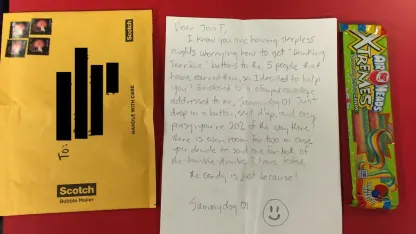 Scotch
HANDLE WITH CARE
To:
Scotch
Bubble Mailer
Dear Jon T,
I know you are having sleepless
nights worrying how to get "Drinking
Terrible" buttons to the 5 people that
have earned them, so I decided to help
you! Enclosed is a stamped envelope
addressed to me, Sammydog01. Just
drop in a button, seal it up, and easy
peasy you're 20% of the way there!
There is even room for two in case
you decide to send one for both of
the terrible drinks I have tasted.
The candy is just because!
Sammydog01
AIRHEADS
XTREMES